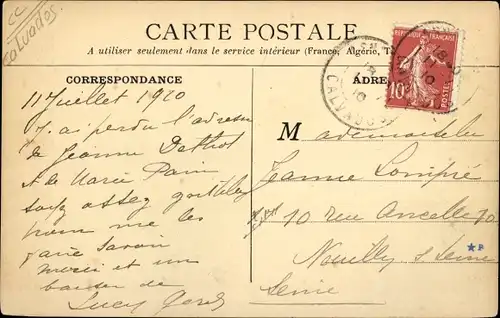 CC
Calvados.
CARTE POSTALE
A utiliser seulement dans le service intérieur (France, Algérie, T
CORRESPONDANCE
ADRE
REPUBLIQUE FRANÇAISE
10c
POSTES
CALVADOS
11 Juillet 1910
J'ai perdu l'adresse
de Jeanne
et de Marie
soyez assez gentille
pour me les
faire savoir
merci et un
baiser de
Lucy
Mademoiselle
Jeanne Lompié
10 rue Ancelle 10
Neuilly s. Seine
Seine